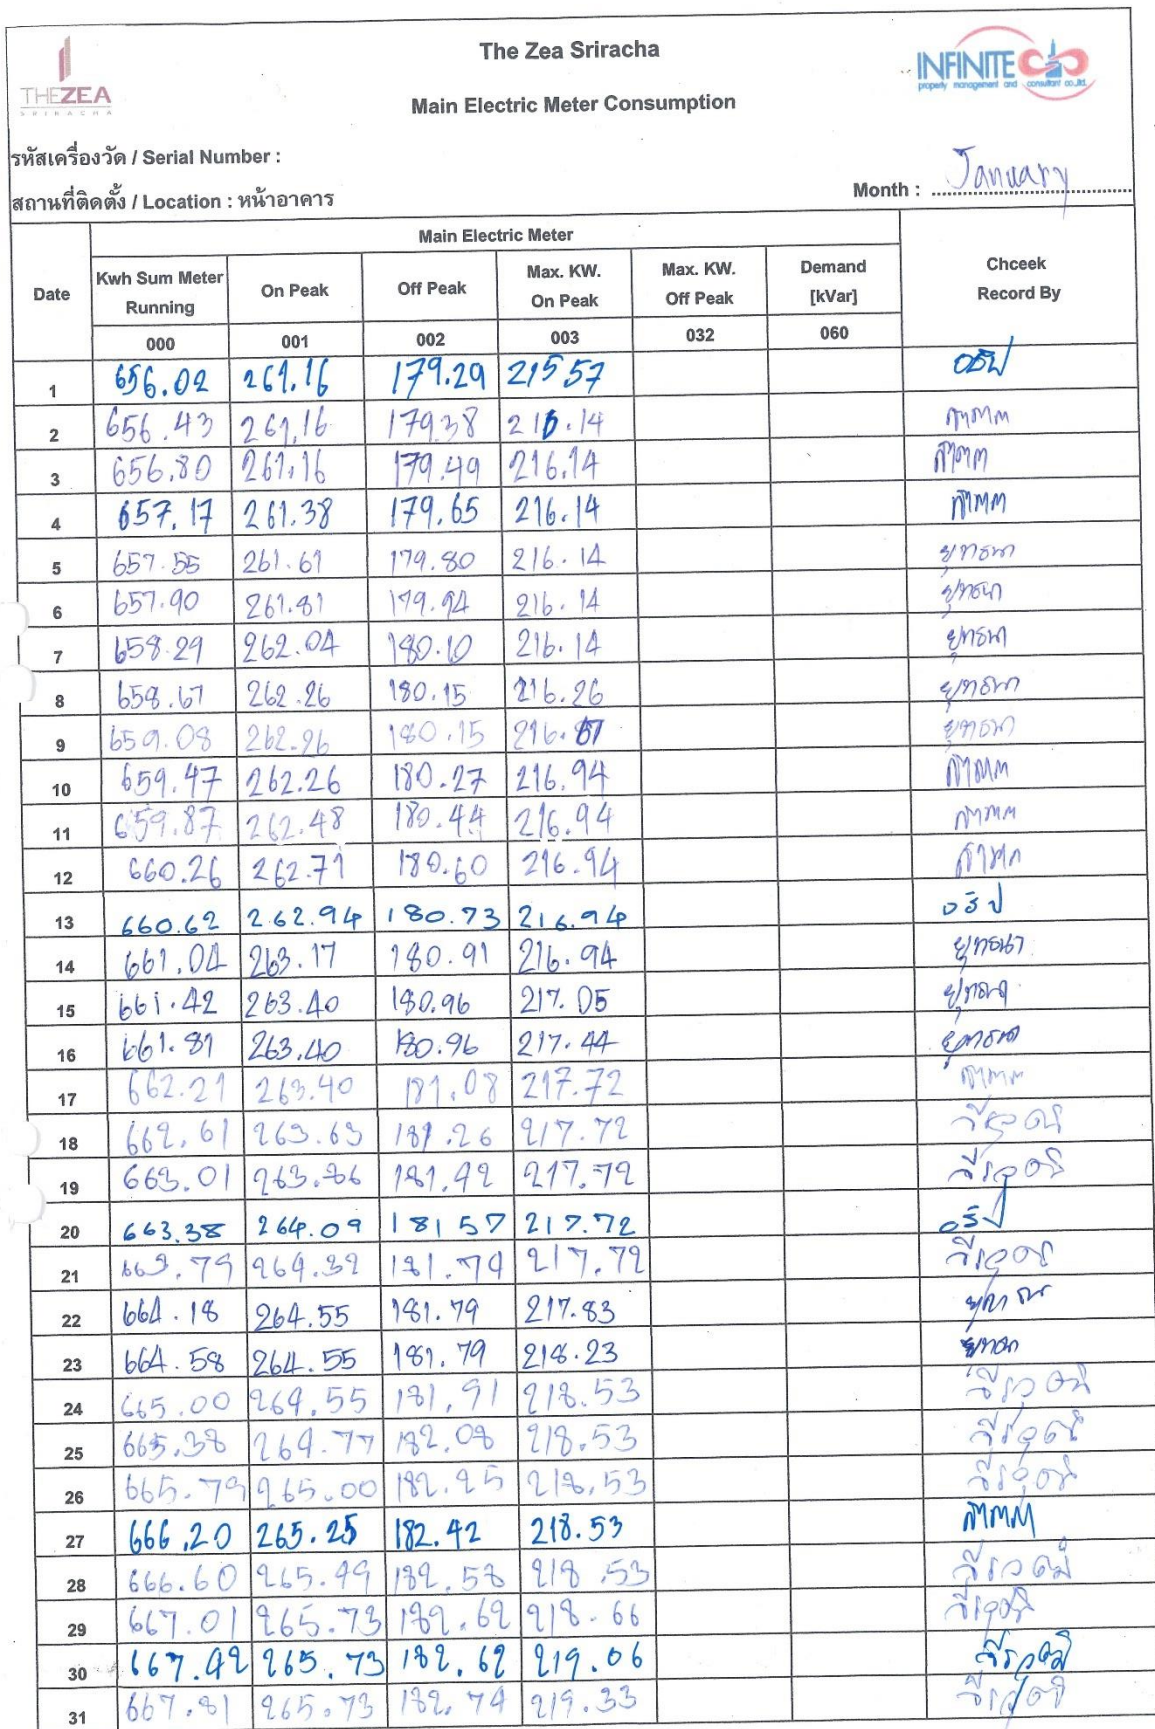 THEZEA
SRIRACHA
The Zea Sriracha
INFINITE
property management and consultant co.,ltd.
Main Electric Meter Consumption
รหัสเครื่องวัด / Serial Number :
สถานที่ติดตั้ง / Location : หน้าอาคาร
Month : January
Date Main Electric Meter Chceek Record By
Kwh Sum Meter Running On Peak Off Peak Max. KW. On Peak Max. KW. Off Peak Demand [kVar]
000 001 002 003 032 060
1 656.02 261.16 179.29 215 57 อธิป
2 656.43 261.16 179.38 216.14
3 656.80 261.16 179.49 216.14
4 657.17 261.38 179.65 216.14
5 657.55 261.61 179.80 216.14 ยุทธนา
6 657.90 261.81 179.94 216.14 ยุทธนา
7 658.29 262.04 180.10 216.14 ยุทธนา
8 658.67 262.26 180.15 216.26 ยุทธนา
9 659.08 262.26 180.15 216.67 ยุทธนา
10 659.47 262.26 180.27 216.94
11 659.87 262.48 180.44 216.94
12 660.26 262.71 180.60 216.94
13 660.62 262.94 180.73 216.94 อธิป
14 661.04 263.17 180.91 216.94 ยุทธนา
15 661.42 263.40 180.96 217.05 ยุทธนา
16 661.81 263.40 180.96 217.44 ยุทธนา
17 662.21 263.40 181.08 217.72
18 662.61 263.63 181.26 217.72
19 663.01 263.86 181.42 217.72
20 663.38 264.09 181 57 217.72 อธิป
21 663.79 264.32 181.74 217.72
22 664.18 264.55 181.79 217.83
23 664.58 264.55 181.79 218.23
24 665.00 264.55 181.91 218.53
25 665.38 264.77 182.08 218.53
26 665.79 265.00 182.25 218.53
27 666.20 265.25 182.42 218.53
28 666.60 265.49 182.58 218.53
29 667.01 265.73 182.62 218.66
30 667.42 265.73 182.62 219.06
31 667.81 265.73 182.74 219.33